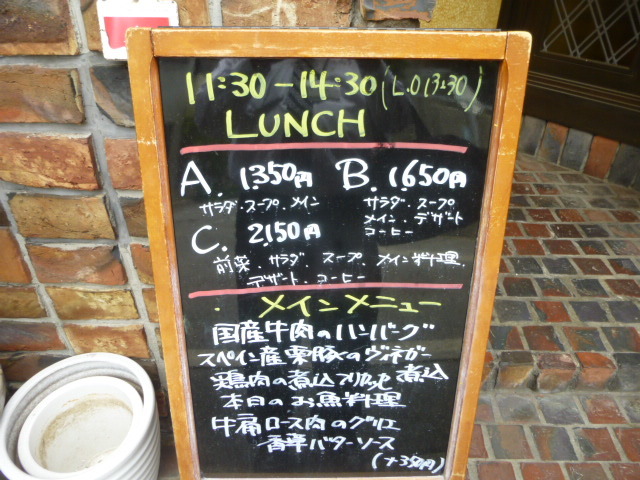 11:30-14:30 (L.O 13:30)
LUNCH
A. 1350円
サラダ・スープ・メイン
B. 1650円
サラダ・スープ
メイン・デザート
コーヒー
C. 2150円
前菜・サラダ・スープ・メイン料理
デザート・コーヒー
・メインメニュー
国産牛肉のハンバーグ
スペイン産栗豚のヴィネガー煮込
鶏肉の煮込
本日のお魚料理
牛肩ロース肉のグリエ
香草バターソース